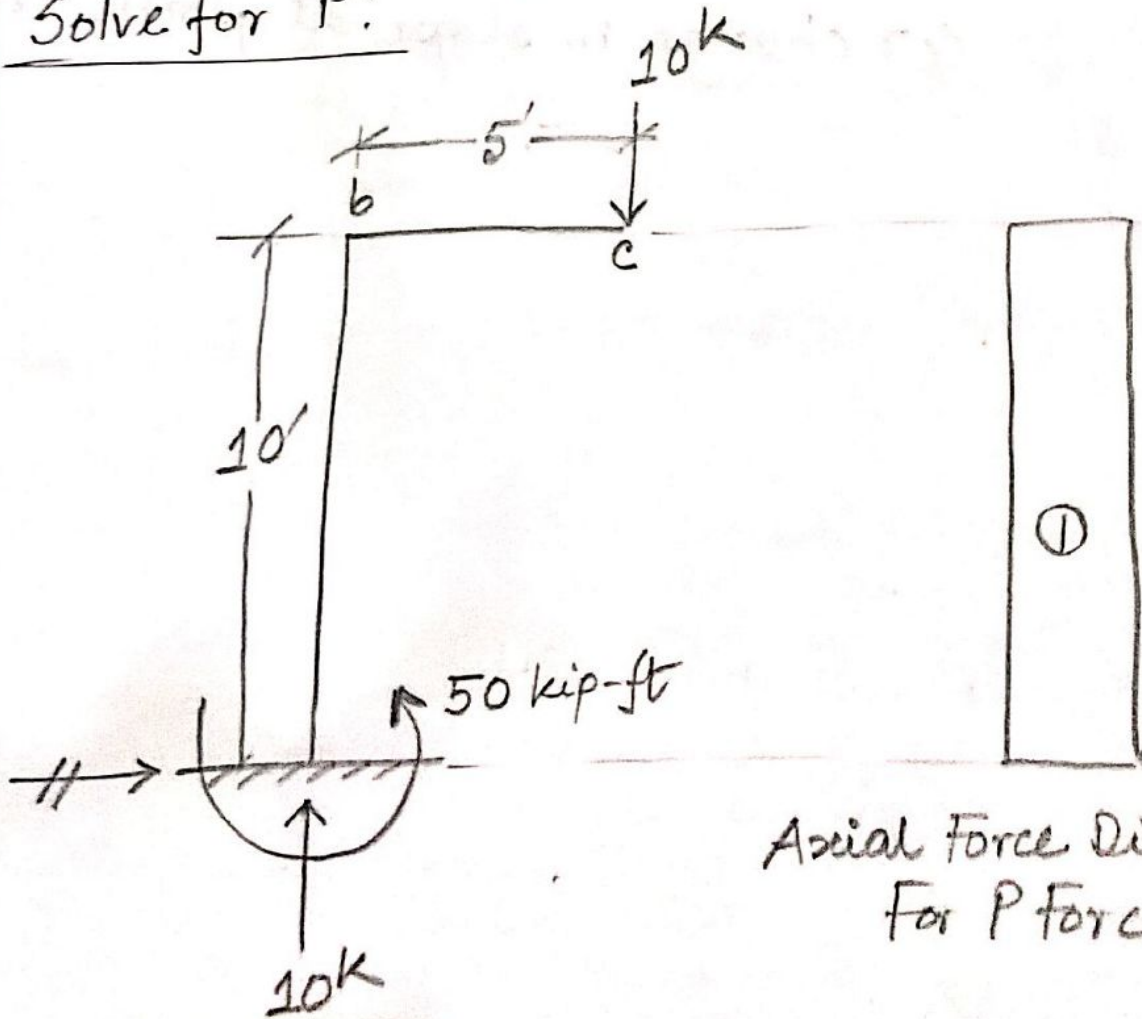 Solve for P.
10k
5'
b
c
10'
①
50 kip-ft
Axial Force Di
For P Forc
10k